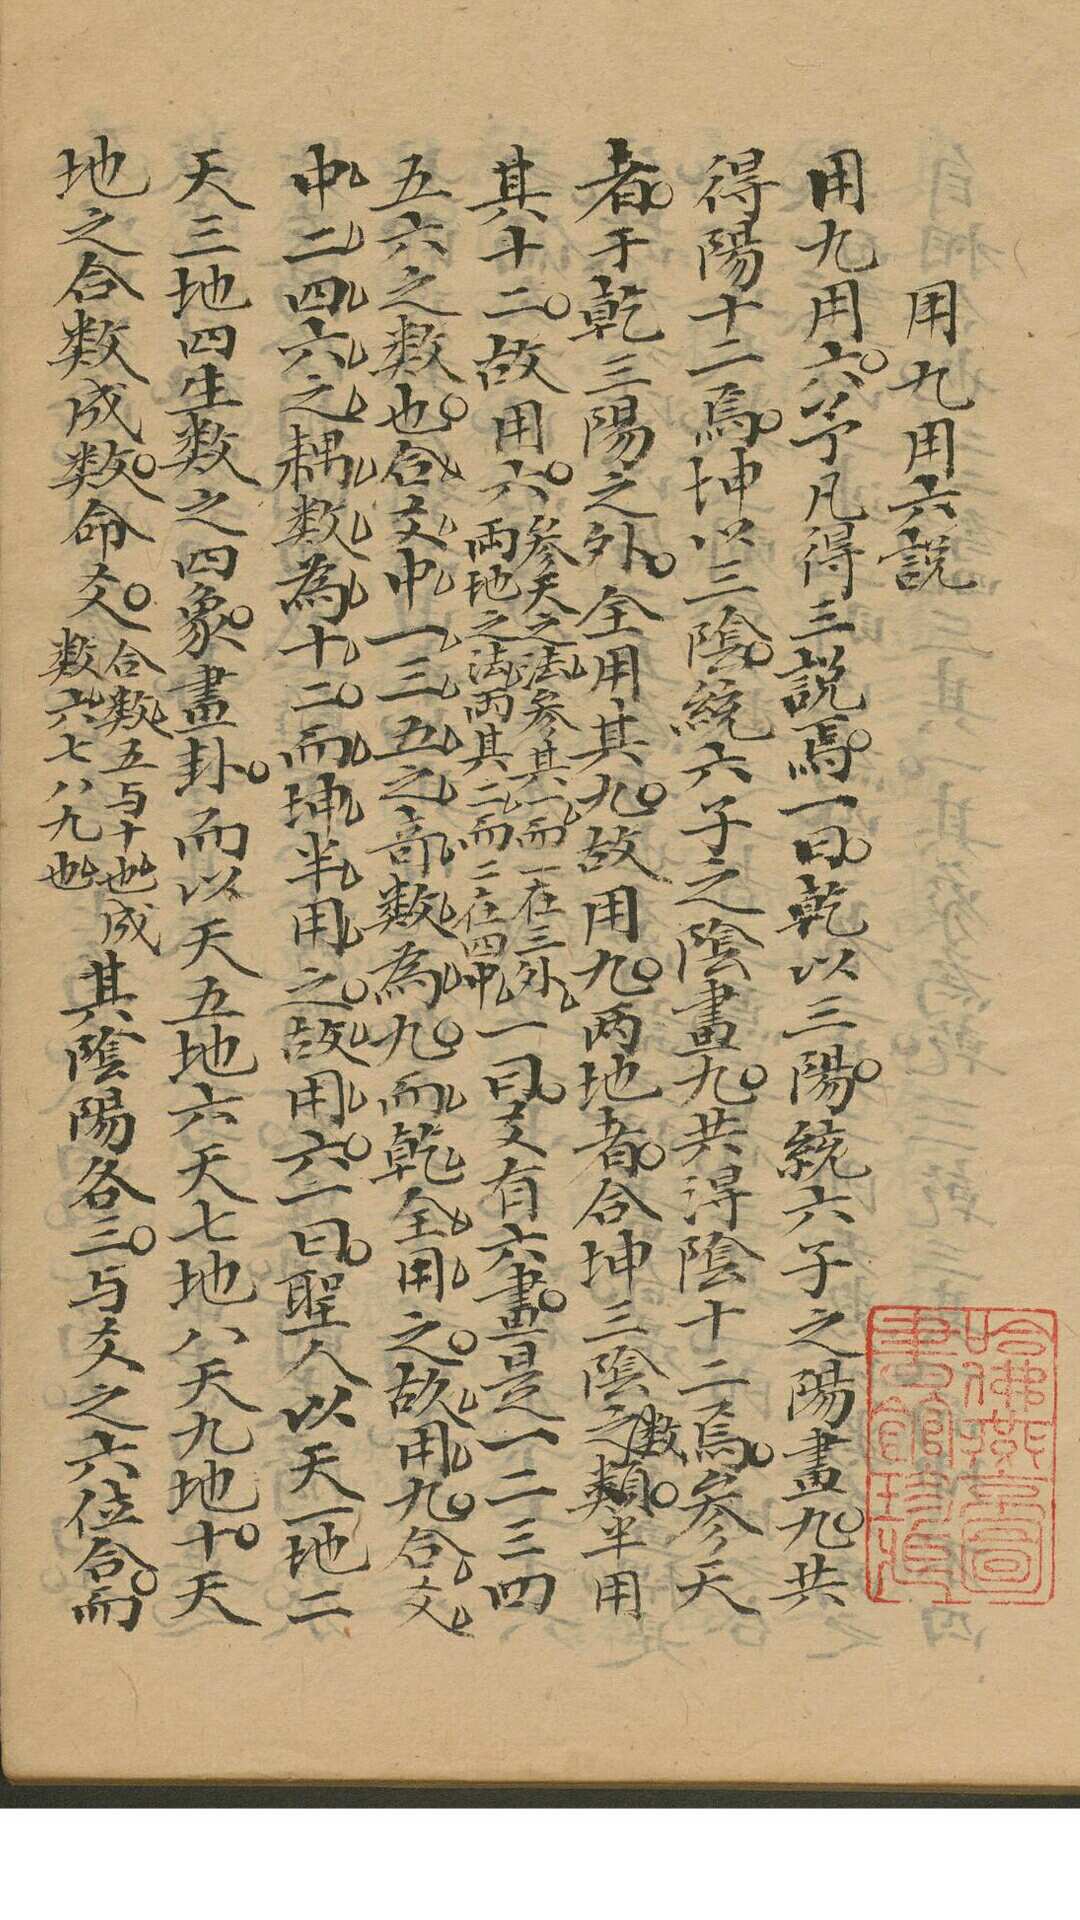 用九用六說
用九用六。予凡得三說焉。一曰。乾以三陽。統六子之陽畫九。共
得陽十二焉。坤以三陰。統六子之陰畫九。共得陰十二焉。參天
者。于乾三陽之外。全用其九。故用九。兩地者。合坤三陰之數類。半用
其十二。故用六。參天之法參其一而一在三外
兩地之法兩其二而二在四中
一曰。爻有六畫。是一二三四
五六之數也。合爻中一三五之奇數為九。而乾全用之。故用九。合爻
中二四六之耦數為十二。而坤半用之。故用六。一曰。聖人以天一地二
天三地四生數之四象。畫卦。而以天五地六天七地八天九地十。天
地之合數成數。命爻。合數五与十也成
數六七八九也
其陰陽各三。与爻之六位合。而
哈佛燕京
圖書館珍藏